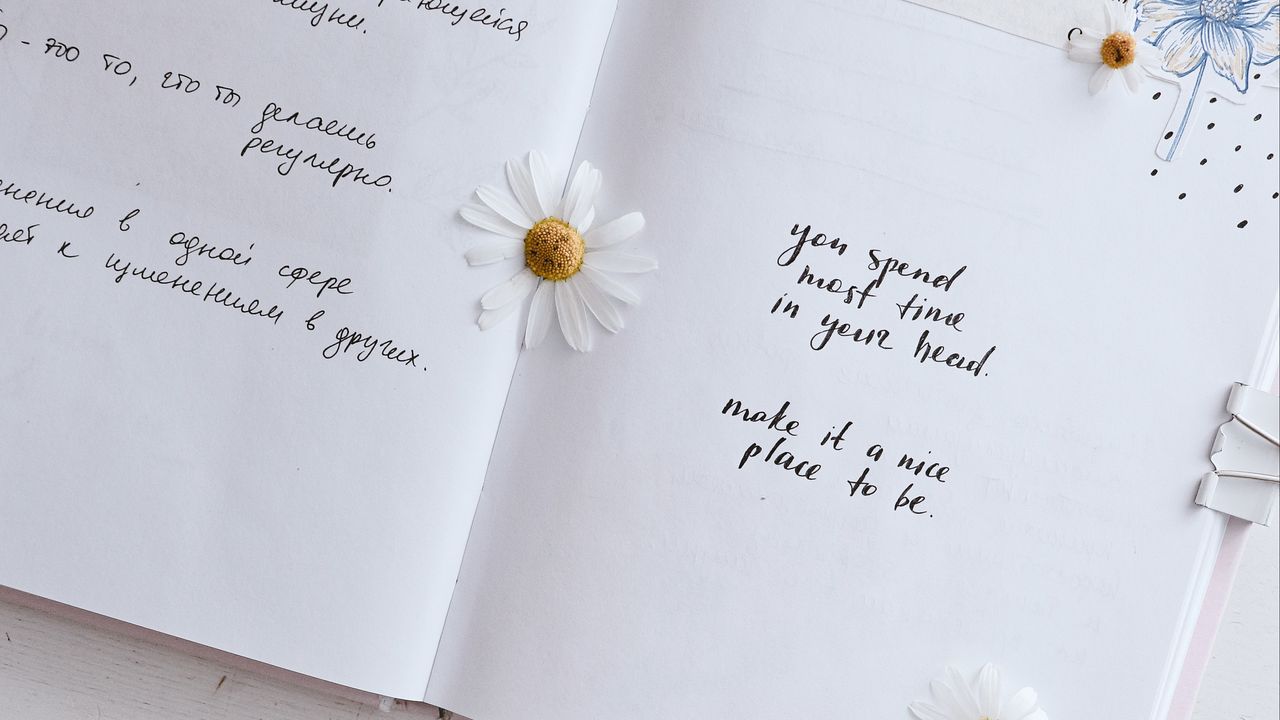 то, что ты делаешь
регулярно.
в одной сфере
к изменениям в других.
you spend
most time
in your head.
make it a nice
place to be.